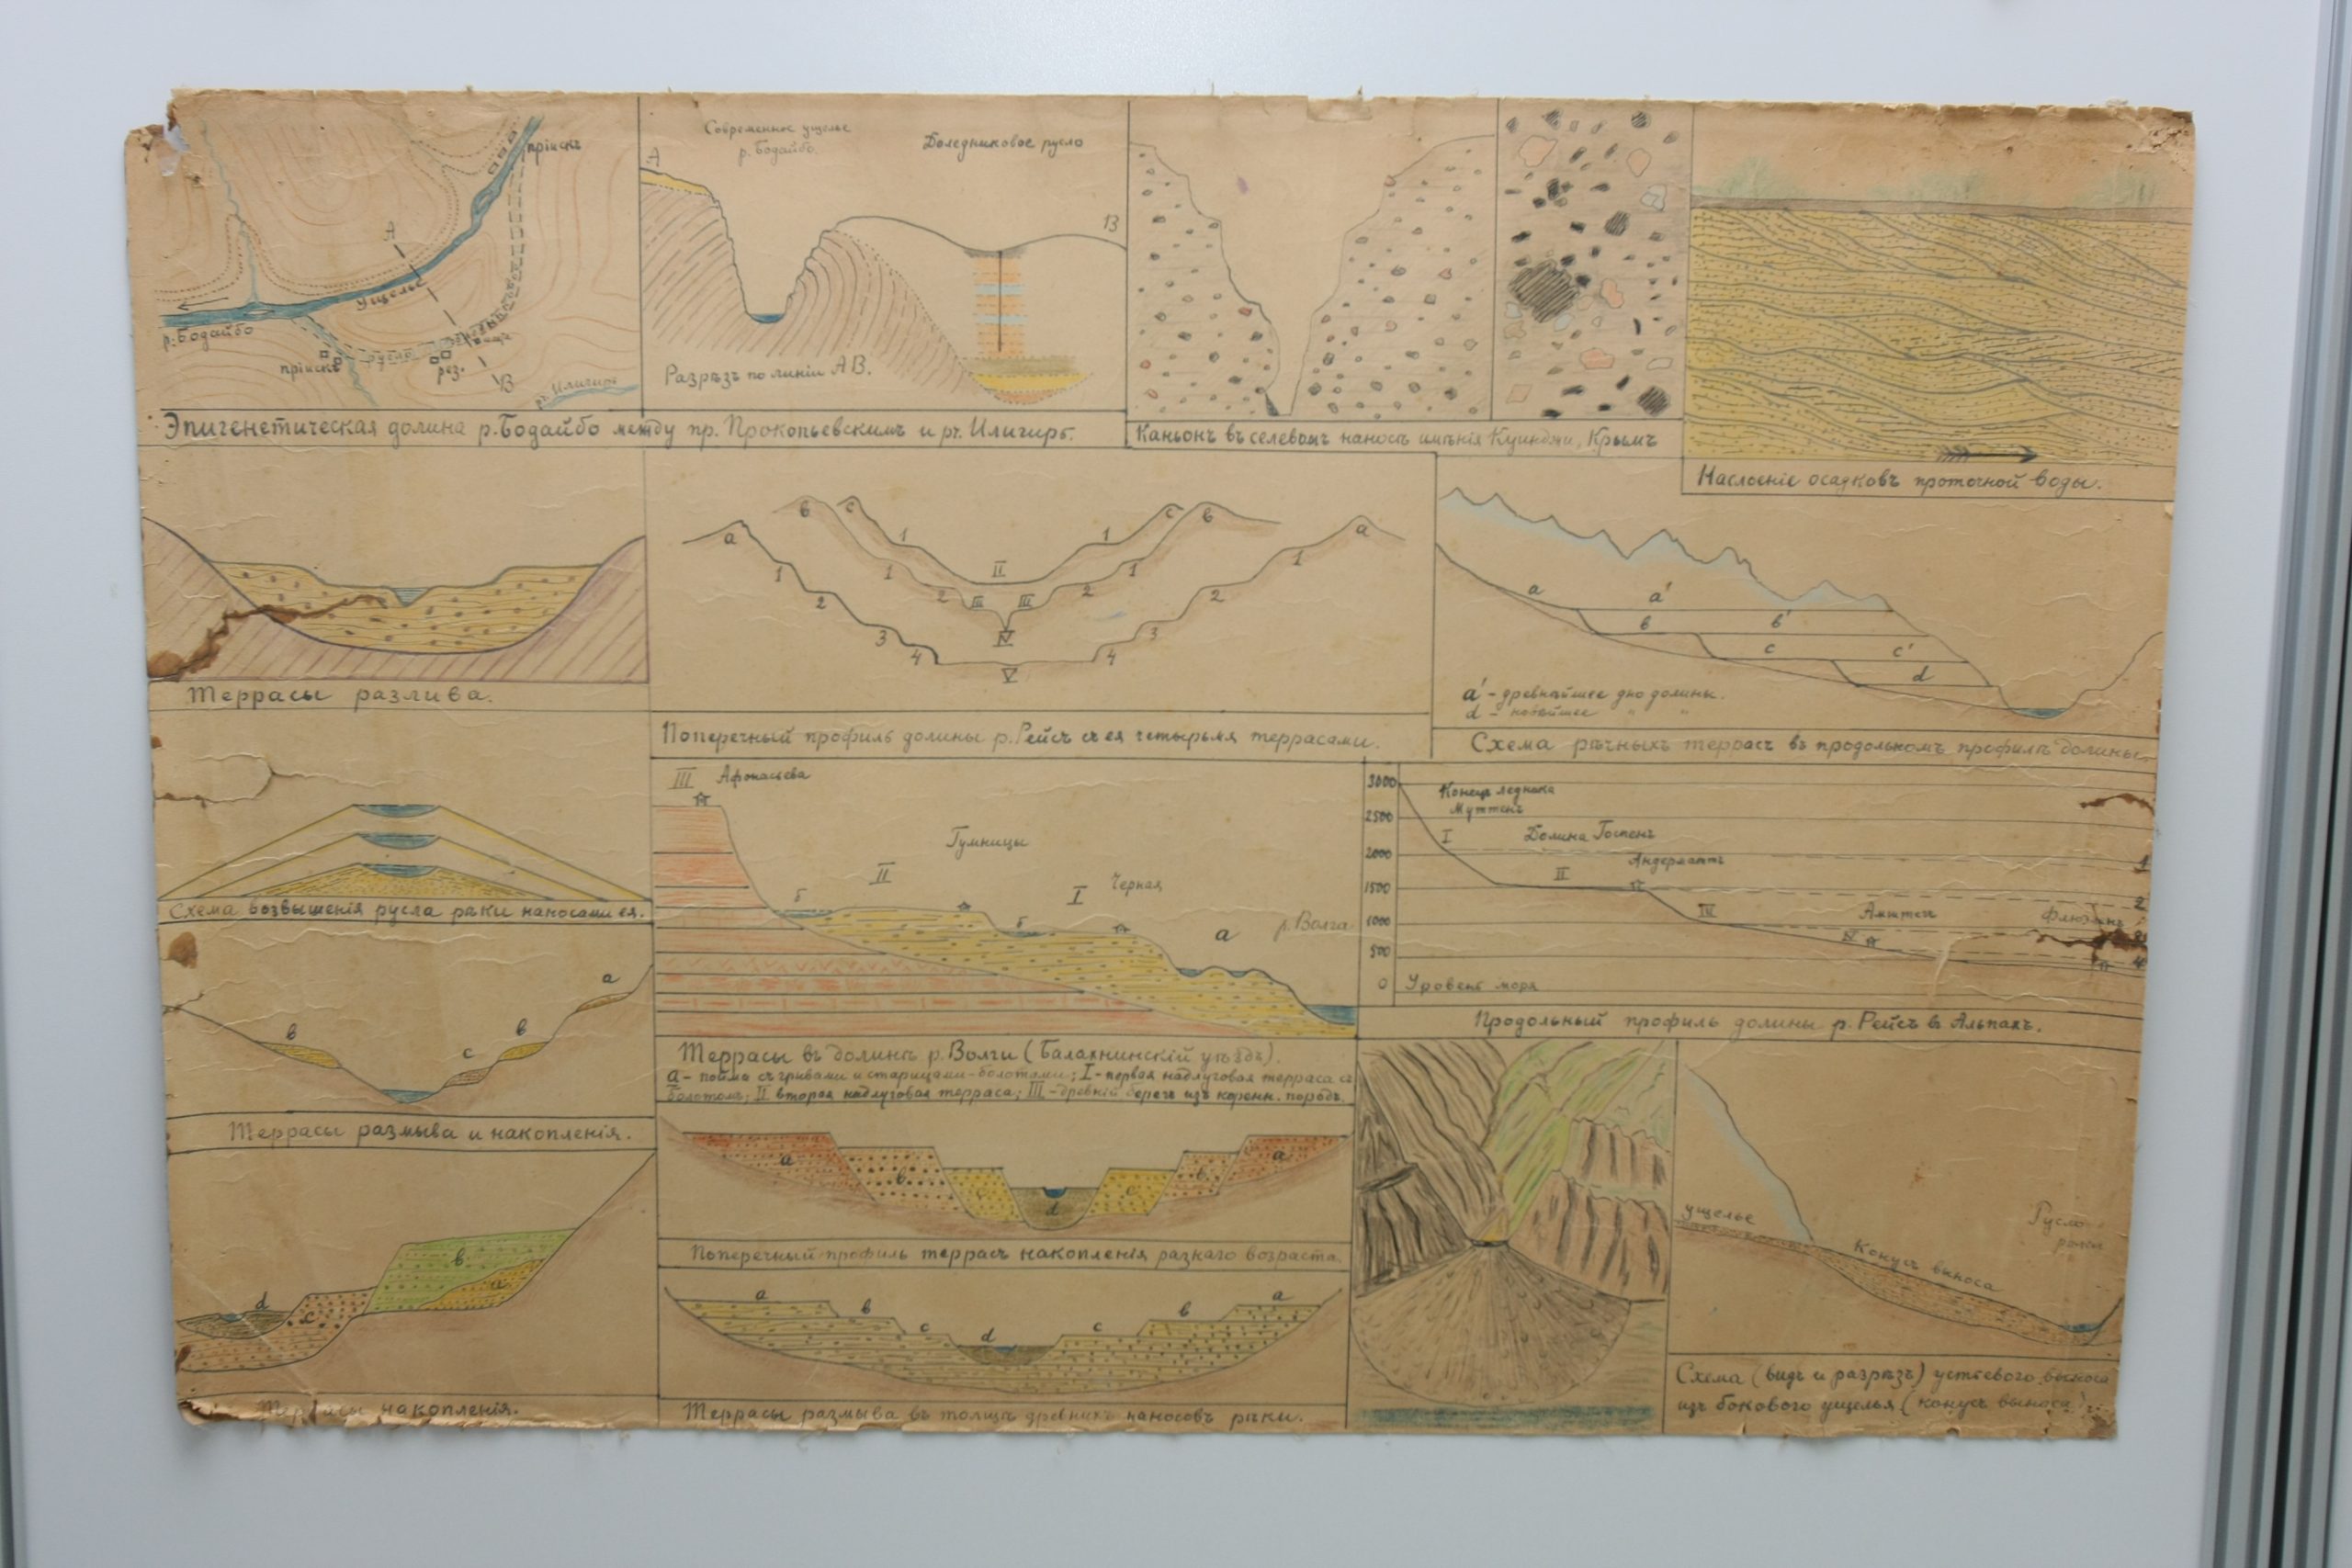 прiискъ
А
Ущелье
р. Бодайбо
прiискъ
русло
рез.
В
рч. Илигирь
Современное ущелье
р. Бодайбо.
Доледниковое русло
А
В
Разрѣзъ по линiи АВ.
Эпигенетическая долина р. Бодайбо между пр. Прокопьевскимъ и рч. Илигирь.
Каньонъ въ селевомъ наносѣ имѣнiя Куинджи, Крымъ
Наслоенiе осадковъ проточной воды.
Террасы разлива.
в с 1 1 с в
а 1 II 1 а
1 1 1
2 2 III III 2 2
3 IV 3
4 V 4
Поперечный профиль долины р. Рейсъ съ ея четырьмя террасами.
а а'
в в'
с с'
d
а' – древнѣйшее дно долины.
d – новѣйшее " "
Схема рѣчныхъ террасъ въ продольномъ профилѣ долины
Схема возвышенiя русла рѣки наносами ея.
III Афонасьева
Гумницы
II
I Черная
Б
Б
а
р. Волга
Террасы въ долинѣ р. Волги (Балахнинскiй уѣздъ).
а – пойма съ гривами и старицами-болотами; I – первая надлуговая терраса съ
болотомъ; II вторая надлуговая терраса; III – древнiй берегъ изъ коренн. породъ.
3000
2500
2000
1500
1000
500
0
Конецъ ледника
Муттенъ
I
Долина Госпенъ
Андерматъ
II
III
Амштегъ
IV
Флюэленъ
1
2
3
4
Уровень моря
Продольный профиль долины р. Рейсъ въ Альпахъ.
а
в
в
с
Террасы размыва и накопленiя.
в
а
с
d
Террасы накопленiя.
а а
в в
с с
d
Поперечный профиль террасъ накопленiя разнаго возраста.
а а
в в
с с
d
Террасы размыва въ толщѣ древнихъ наносовъ рѣки.
ущелье
Конусъ выноса
Русло
рѣки
Схема (видъ и разрѣзъ) устьевого выноса
изъ бокового ущелья (конусъ выноса).